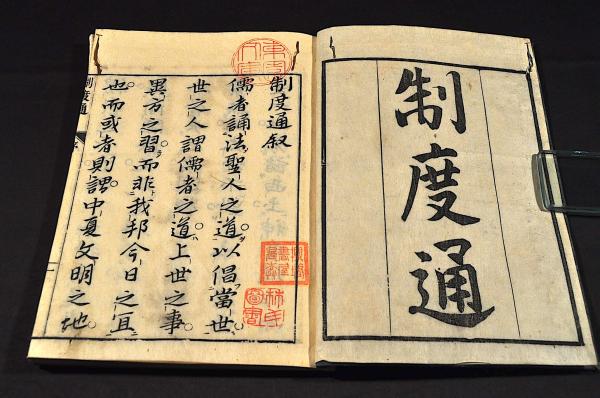 制度通
制度通叙
儒者誦法聖人之道以倡當世
世之人謂儒者之道上世之事
異方之習而非我邦今日之宜
也而或者則謂中夏文明之地
制度通
林氏
圖書